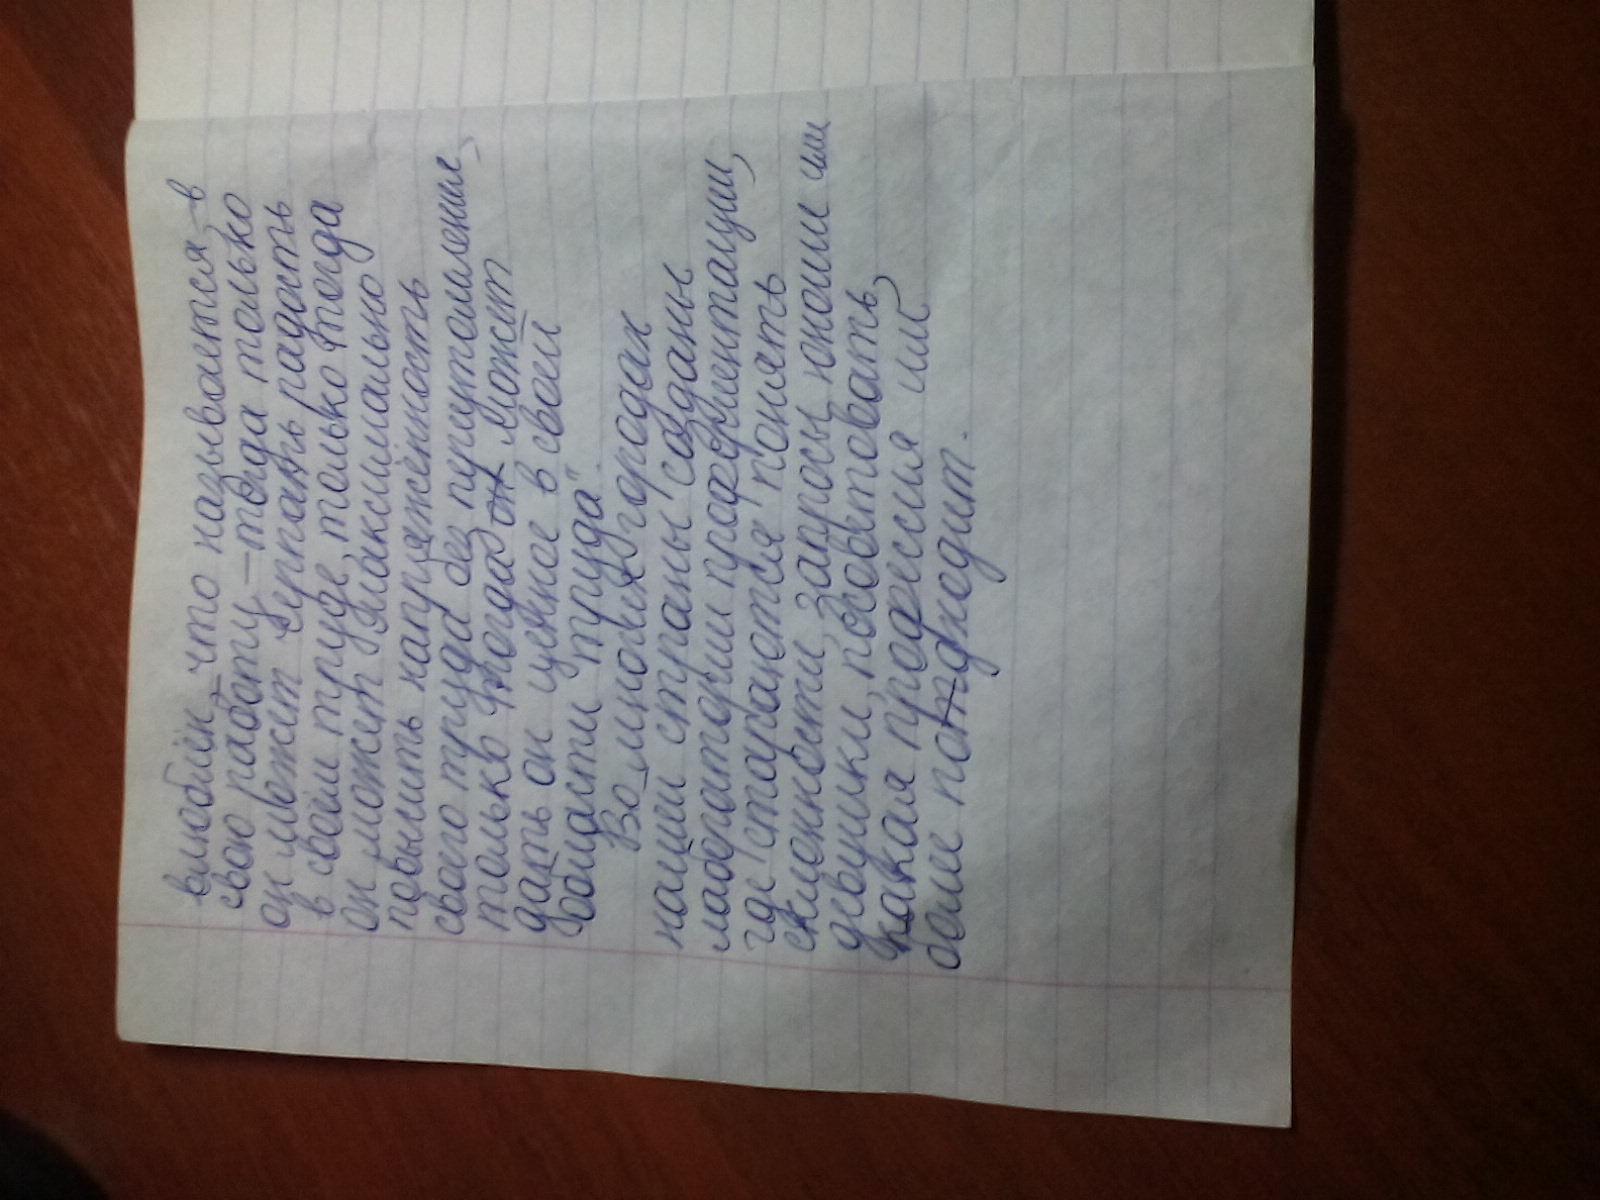 влюблён – что называется – в
свою работу – тогда только
он может черпать радость
в своём труде, только тогда
он может максимально
повысить напряжённость
своего труда без переутомления,
только тогда он может
дать он ценное в своей
области труда".
Во многих городах
нашей страны созданы
лаборатории профориентации,
где стараются понять
склонности, запросы юноши или
девушки, посоветовать,
какая профессия им
боле подходит.